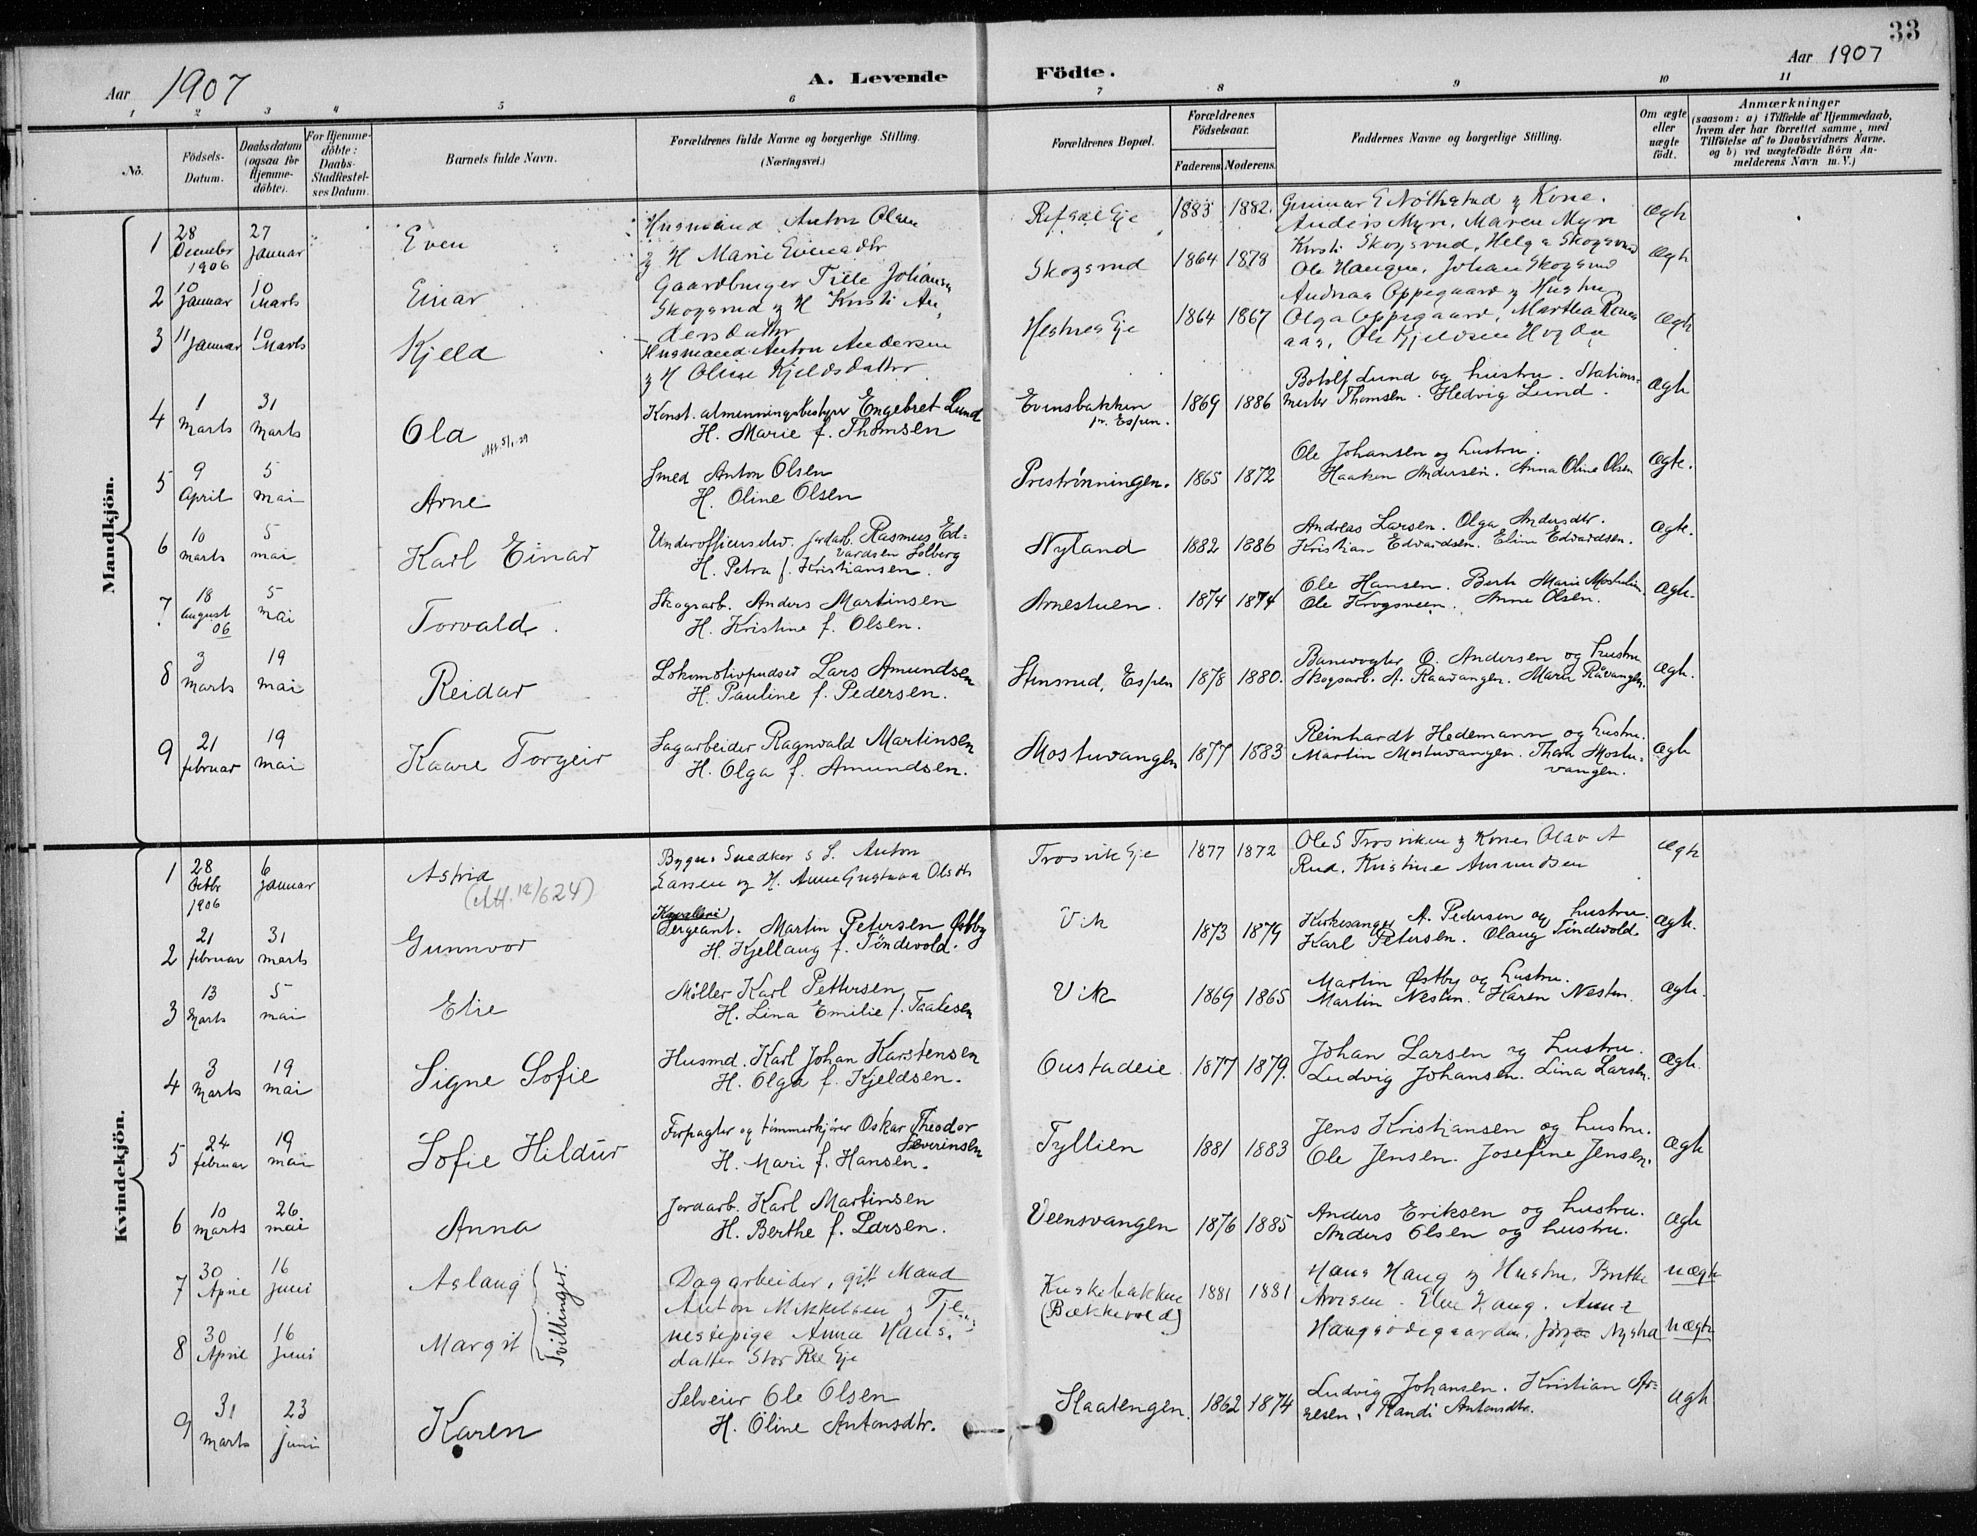 33
Aar 1907
A. Levende Födte.
Aar 1907
1 2 3 4 5 6 7 8 9 10 11
No.
Födsels-Datum.
Daabsdatum (ogsaa for Hjemme-döbte).
For Hjemme-döbte: Daabs-Stadfæstel-ses Datum.
Barnets fulde Navn.
Forældrenes fulde Navne og borgerlige Stilling. (Næringsvei.)
Forældrenes Bopæl.
Forældrenes Födselsaar.
Faderens. Moderens.
Faddernes Navne og borgerlige Stilling.
Om ægte eller uægte födt.
Anmærkninger
(saasom: a) i Tilfælde af Hjemmedaab, hvem der har forrettet samme, med Tilföielse af to Daabsvidners Navne. og b) ved uægtefödte Börn An-melderens Navn m. V.)
Mandkjön.
1 28 December 1906 27 Januar Even
Husmand Anton Olsen
og H Marie Evensdtr
Refsal Eje 1883 1882.
Gunnar E Nöttestad og Kone.
Anders Myre, Maren Myre
Ægte
2 10 Januar 10 Marts Einar
Gaardbruger Tille Johansen
Skogsrud og H Kirsti An-
dersdatter
Skogsrud 1864 1878
Kirsti Skogsrud, Helga Skogsrud
Ole Haugen, Johan Skogsrud
Ægte
3 11 Januar 10 Marts Kjeld
Husmand Anton Andersen
og H Oline Kjeldsdatter
Hestnes Eje 1864 1867
Andreas Oppegaard og Hustru
Olga Oppegaard, Martha Renaas
aas, Ole Kjeldsen
Ægte
4 1 Marts 31 Marts Ola
Konst. almenningsbestyrer Engebret Lund
H. Marie f. Thomsen
Evensbakken
pr. Espen.
1869 1886
Botolf Lund og hustru. Stations-
mester Thomsen. Hedvig Lund.
Ægte
5 9 April 5 mai Arne
Smed Anton Olsen
H. Oline Olsen
Prestrønningen. 1865 1872
Ole Johansen og hustru.
Haaken Andersen. Anna Oline Olsen
Ægte.
6 10 marts 5 mai Karl Einar
Underofficerselev. jordarb. Rasmus Ed-
vardsen Solberg
H. Petra f. Kristiansen.
Nyland 1882 1886
Andreas Larsen. Olga Andersdtr.
Kristian Edvardsen. Eline Edvardsen.
Ægte.
7 18 august 06 5 mai Torvald.
Skogsarb. Anders Martinsen
H. Kristine f. Olsen.
Arnestuen. 1874 1874
Ole Hansen. Berte Marie Mostulien
Ole Krogsveen. Anne Olsen.
Ægte.
8 3 marts 19 mai Reidar
Lokomotivpudser Lars Amundsen
H. Pauline f. Pedersen.
Stensrud, Espen 1878 1880.
Banevogter O. Andersen og hustru
Skogsarb. A. Raavangen. Maria Råvangen.
Ægte.
9 21 februar 19 mai Kaare Torgeir
Sagarbeider Ragnvald Martinsen
H. Olga f. Amundsen.
Mostuvangen 1877 1883
Reinhardt Hedemann og hustru.
Martin Mostuvangen. Thora Mostu-
vangen.
Ægte
Kvindekjön.
1 28 Octbr 1906 6 Januar Astrid
Bygn. Snedker s S. Anton
Larsen og H. Anne Gustava Olsdtr
Trosvik Eje 1877 1872
Ole S Trosviken og Kone, Olav A
Rud, Kristine Amundsen
Ægte
2 21 februar 31 marts Gunnvor
Kavalleri
Sergeant. Martin Petersen Østby
H. Kjellaug f. Tindevold.
Vik 1873 1879
Kirkesanger A. Pedersen og hustru.
Karl Petersen. Olaug Tindevold.
Ægte.
3 13 Marts 5 mai Elie
Møller Karl Pettersen
H. Lina Emilie f. Taalesen
Vik 1869 1865
Martin Østby og hustru.
Martin Nesten. Karen Nesten.
Ægte.
4 3 Marts 19 mai Signe Sofie
Husmd. Karl Johan Karstensen
H. Olga f. Kjeldsen.
Oustadeie. 1877 1879.
Johan Larsen og hustru.
Ludvig Johansen. Lina Larsen.
Ægte.
5 24 februar 19 mai Sofie Hildur
Forpagter og tømmerkjører Oskar Theodor
Severinsen
H. Mari f. Hansen.
Tyllien 1881 1883
Jens Kristiansen og hustru.
Ole Jensen. Josefine Jensen.
Ægte
6 10 marts 26 mai Anna
Jordarb. Karl Martinsen
H. Berthe f. Larsen.
Veensvangen 1876 1885
Anders Eriksen og hustru.
Anders Olsen og hustru.
Ægte
7 30 April 16 Juni Aslaug
8 30 April 16 Juni Margit
Tvillinger.
Dagarbeider, gift Mand
Anton Mikkelsen og Tje-
nestepige Anna Hans-
datter Stor Ree Eje
Kuskebakken
(Bækkevold)
1881 1881
Hans Haug og Hustru, Berthe
Arnesen. Elen Haug. Anne
Haugsødegaarden. Jörgen Nystad
uægte
uægte
9 31 Marts 23 juni Karen
Selveier Ole Olsen
H. Oline Antonsdtr.
Slaatengen. 1862 1874
Ludvig Johansen. Kristian Ar-
nesen. Randi Antonsdtr.
Ægte